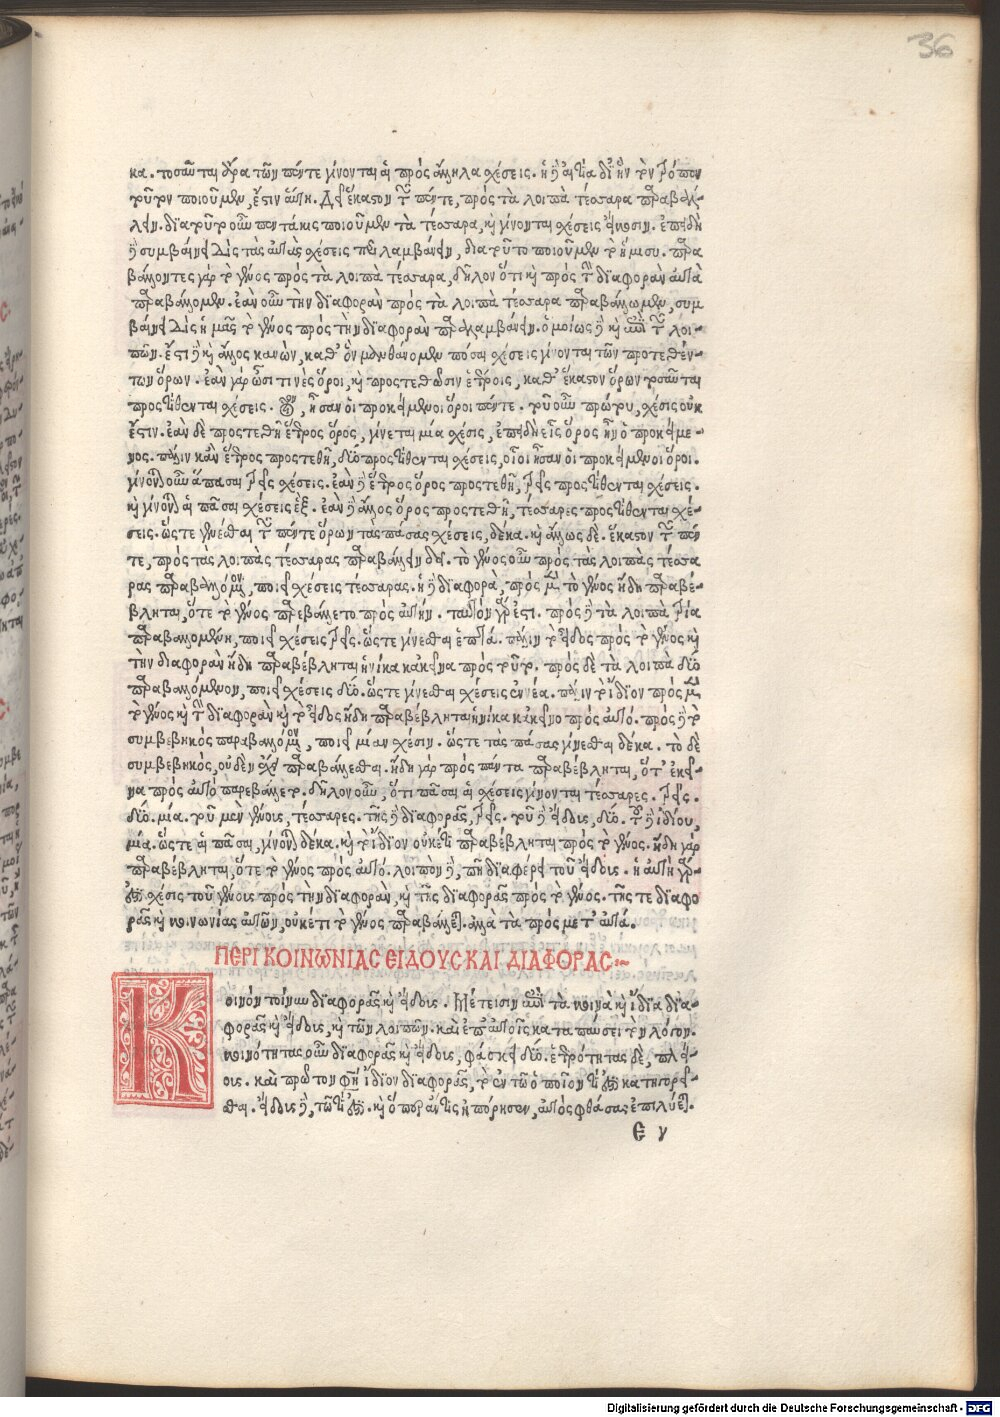 36
κα. τοσαῦται ἄρα τῶν πέντε γίνονται αἱ πρὸς ἄλληλα σχέσεις. ἡ δὲ αἰτία δι' ἣν τὸν τρόπον
τοῦτον ποιοῦμεν, ἔστιν αὕτη. δεῖ ἕκαστον τῶν πέντε, πρὸς τὰ λοιπὰ τέσσαρα παραβαλ-
λειν. διὰ τοῦτο οὖν πεντάκις ποιοῦμεν τὰ τέσσαρα, καὶ γίνονται σχέσεις εἴκοσιν. ἐπειδὴ
δὲ συμβαίνει δὶς τὰς αὐτὰς σχέσεις περιλαμβάνειν, διὰ τοῦτο ποιοῦμεν τὸ ἥμισυ. παρα
βάλλοντες γὰρ τὸ γένος πρὸς τὰ λοιπὰ τέσσαρα, δῆλον ὅτι καὶ πρὸς τὴν διαφορὰν αὐτὸ
παραβάλλομεν. ἐὰν οὖν τὴν διαφορὰν πρὸς τὰ λοιπὰ τέσσαρα παραβάλλωμεν, συμ
βαίνει δὶς ἡμᾶς τὸ γένος πρὸς τὴν διαφορὰν παραλαμβάνειν. ὁμοίως δὲ καὶ ἐπὶ τῶν λοι-
πῶν. ἔστι δὲ καὶ ἄλλος κανὼν, καθ' ὃν μανθάνομεν πόσαι σχέσεις γίνονται τῶν προτεθέν-
των ὅρων. ἐὰν γὰρ ὦσί τινὲς ὅροι, καὶ προστεθῶσιν ἑτέροις, καθ' ἕκαστον ὅρων τοσαῦται
προστίθενται σχέσεις. οἷον, ἦσαν οἱ προκείμενοι ὅροι πέντε. τοῦ οὖν πρώτου, σχέσις οὐκ
ἔστιν. ἐὰν δὲ προστεθῆ ἕτερος ὅρος, γίνεται μία σχέσις, ἐπειδὴ εἷς ὅρος ἦν ὁ προκείμε-
νος. πάλιν κἂν ἕτερος προστεθῆ, δύο προστίθενται σχέσεις, οἷοι ἦσαν οἱ προκείμενοι ὅροι.
γίνονται οὖν ἅπασαι τρεῖς σχέσεις. ἐὰν δὲ ἕτερος ὅρος προστεθῆ, τρεῖς προστίθενται σχέσεις.
καὶ γίνονται αἱ πᾶσαι σχέσεις ἓξ. ἐὰν δὲ ἄλλος ὅρος προστεθῆ, τέσσαρες προστίθενται σχέ-
σεις. ὥστε γίνεσθαι τῶν πέντε ὅρων τὰς πάσας σχέσεις, δέκα. καὶ ἄλλως δὲ. ἕκαστον τῶν πέν
τε, πρὸς τὰς λοιπὰς τέσσαρας παραβάλλειν δεῖ. τὸ γένος οὖν πρὸς τὰς λοιπὰς τέσσα
ρας παραβαλλόμενον, ποιεῖ σχέσεις τέσσαρας. ἡ δὲ διαφορὰ, πρὸς μὲν τὸ γένος ἤδη παραβέ-
βληται, ὅτε τὸ γένος παρεβάλλετο πρὸς αὐτήν. ταυτὸν γάρ ἐστι. πρὸς δὲ τὰ λοιπὰ τρία
παραβαλλομένη, ποιεῖ σχέσεις τρεῖς. ὥστε γίνεσθαι ἑπτά. πάλιν τὸ εἶδος πρὸς τὸ γένος καὶ
τὴν διαφορὰν ἤδη παραβέβληται ἡνίκα κἀκεῖνα πρὸς τοῦτο. πρὸς δὲ τὰ λοιπὰ δύο
παραβαλλόμενον, ποιεῖ σχέσεις δύο. ὥστε γίνεσθαι σχέσεις ἐννέα. πάλιν τὸ ἴδιον πρὸς μὲν
τὸ γένος καὶ τὴν διαφορὰν καὶ τὸ εἶδος ἤδη παραβέβληται ἡνίκα κἀκεῖνο πρὸς αὐτό. πρὸς δὲ τὸ
συμβεβηκὸς παραβαλλόμενον, ποιεῖ μίαν σχέσιν. ὥστε τὰς πάσας γίνεσθαι δέκα. τὸ δὲ
συμβεβηκὸς, οὐδὲν ἔχει παραβάλλεσθαι. ἤδη γὰρ πρὸς πάντα παραβέβληται, ὅτ' ἐκεῖ-
να πρὸς αὐτὸ παρεβάλλετο. δῆλον οὖν, ὅτι πᾶσαι αἱ σχέσεις γίνονται τέσσαρες. τρεῖς.
δύο. μία. τοῦ μὲν γένους, τέσσαρες. τῆς δὲ διαφορᾶς, τρεῖς. τοῦ δὲ εἴδους, δύο. τοῦ δὲ ἰδίου,
μία. ὥστε αἱ πᾶσαι, γίνονται δέκα. καὶ τὸ ἴδιον οὐκέτι παραβέβληται πρὸς τὸ γένος. ἤδη γὰρ
παραβέβληται, ὅτε τὸ γένος πρὸς αὐτό. λοιπὸν δὲ, πῆ διαφέρει τοῦ εἴδους. ἡ αὐτὴ γάρ
ἐστι σχέσις τοῦ γένους πρὸς τὴν διαφορὰν, καὶ τῆς διαφορᾶς πρὸς τὸ γένος. τῆς τε διαφο
ρᾶς καὶ κοινωνίας αὐτῶν, οὐκέτι τὸ γένος παραβάλλεται. ἀλλὰ τὰ πρὸς μετ' αὐτά.
ΠΕΡΙ ΚΟΙΝΩΝΙΑΣ ΕΙΔΟΥΣ ΚΑΙ ΔΙΑΦΟΡΑΣ:~
Κοινὸν τοίνυν διαφορᾶς καὶ εἴδους. Μέτεισιν ἐπὶ τὰ κοινὰ καὶ ἴδια δια-
φορᾶς καὶ εἴδους, καὶ τῶν λοιπῶν. καὶ ἐπ' αὐτοῖς καταπαύσει τὸν λόγον.
κοινότητας οὖν διαφορᾶς καὶ εἴδους, φάσκει δύο. ἑτερότητας δὲ, πλεί-
ους. καὶ πρῶτον φησὶν ἴδιον διαφορᾶς, τὸ ἐν τῶ ὁποῖον τί ἐστι κατηγορεῖ-
σθαι. εἴδους δὲ, τῶ τί ἐστι. καὶ ὅπερ ἄν τις ἠπόρησεν, αὐτὸς φθάσας ἐπιλύεται.
Ε γ
Digitalisierung gefördert durch die Deutsche Forschungsgemeinschaft - DFG